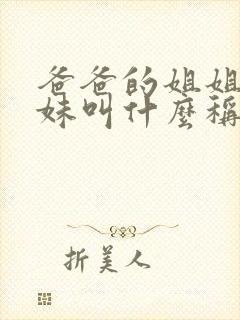 爸爸的姐姐
妹叫什麼稱
折美人